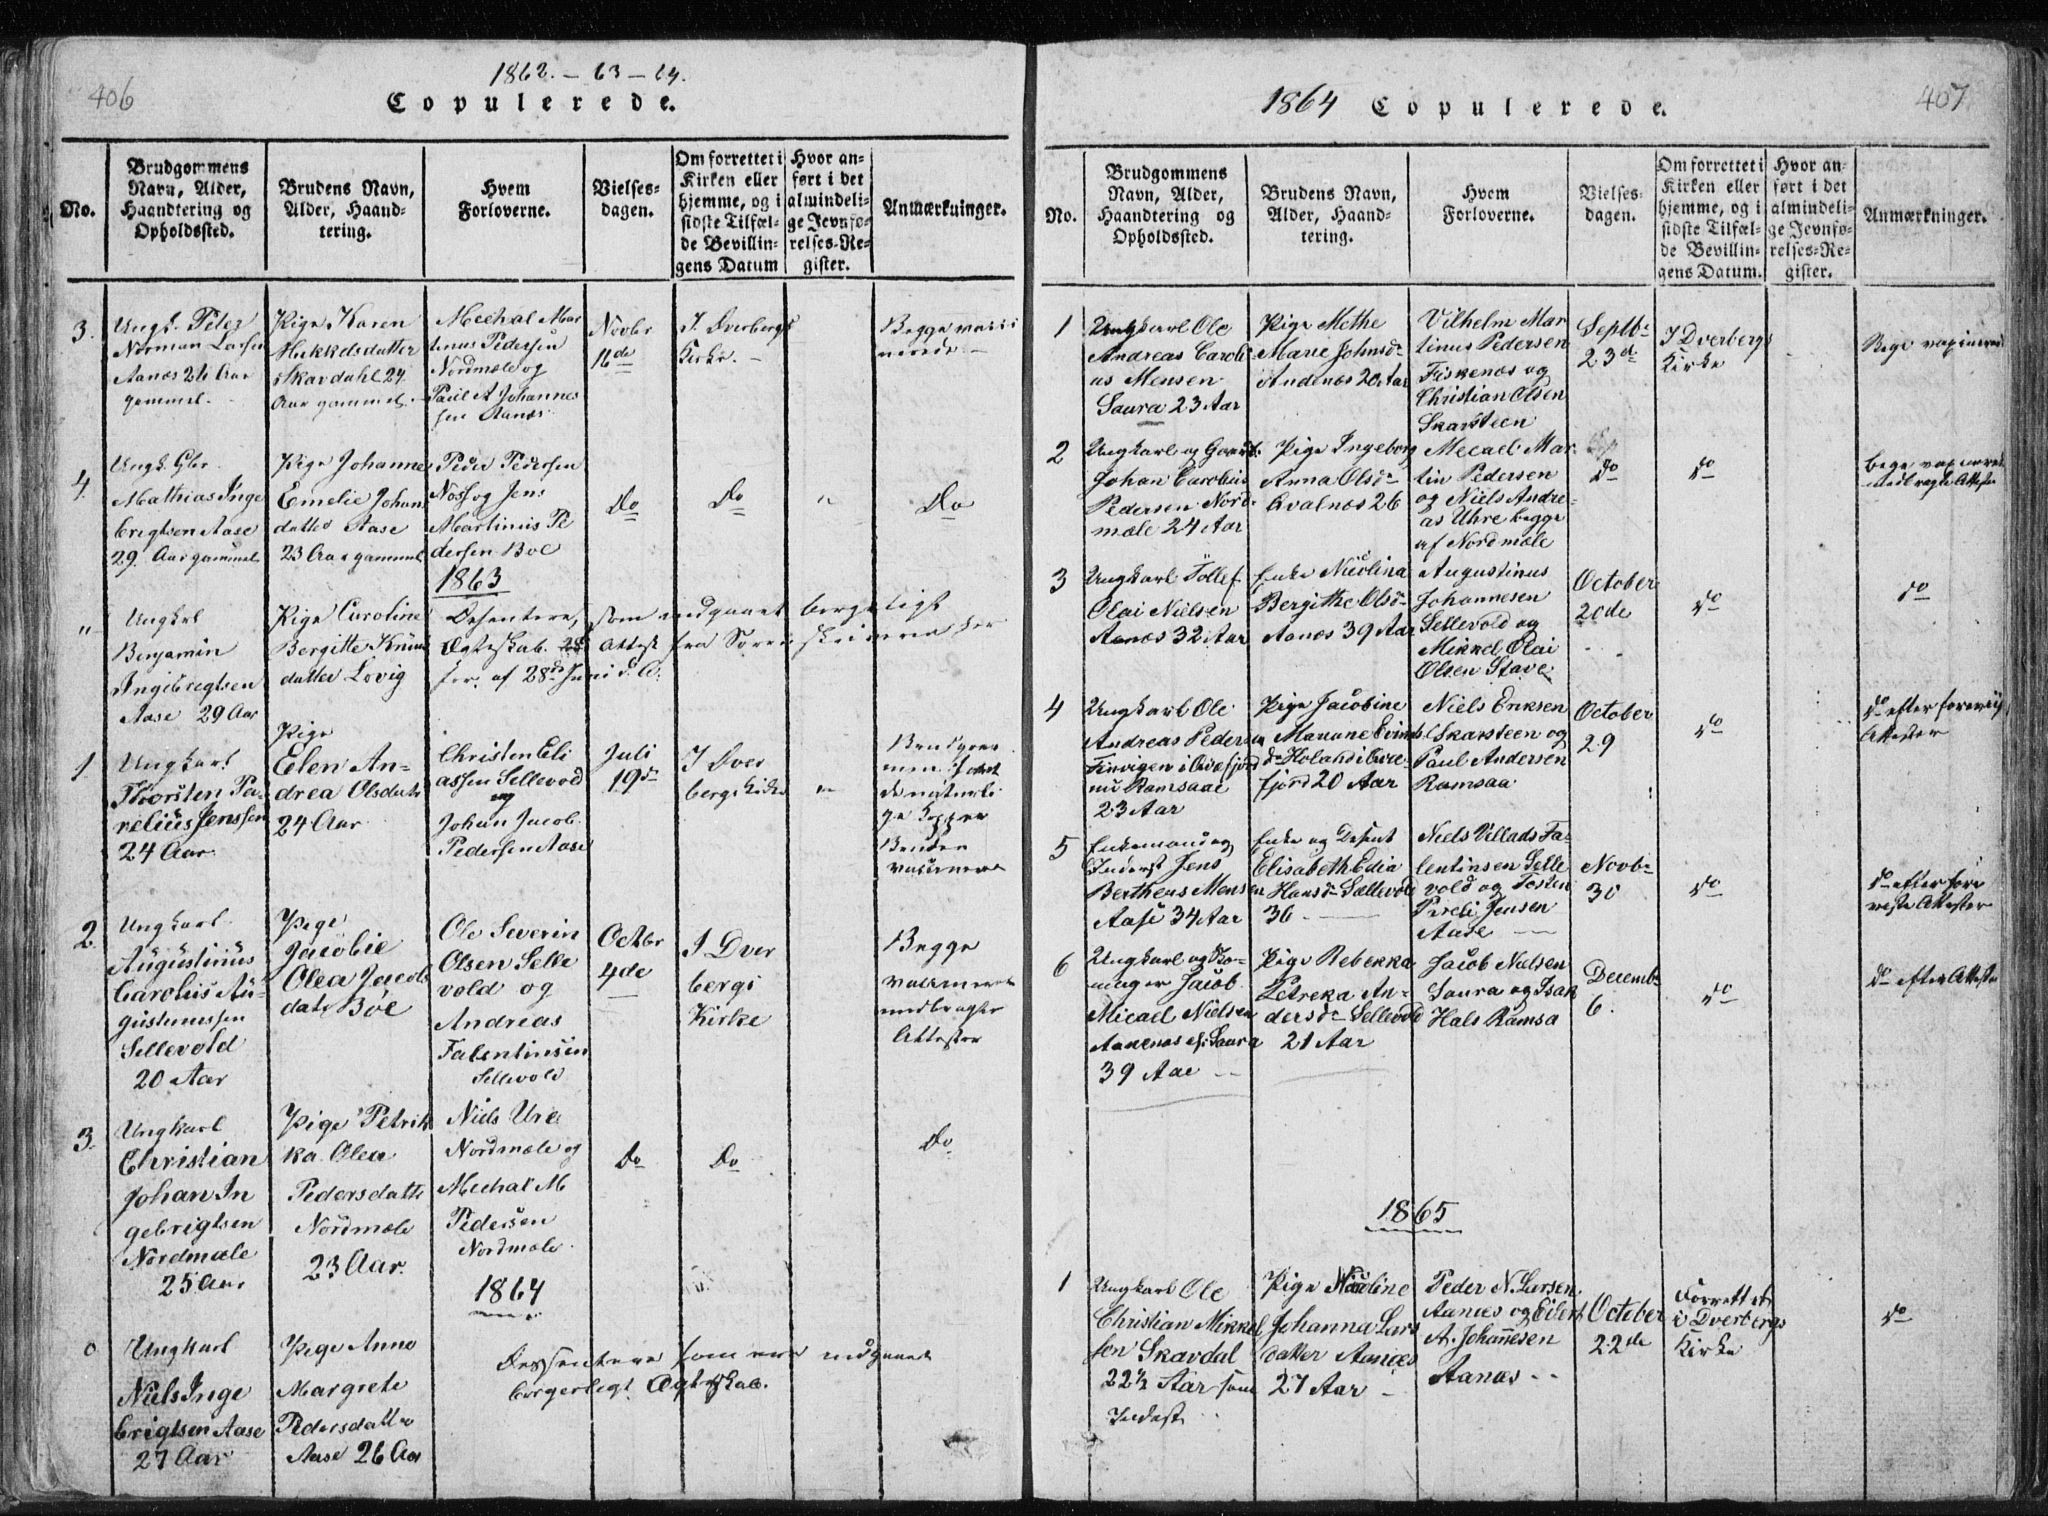 406
1862. – 63 – 64.
Copulerede.
No.
Brudgommens
Navn, Alder,
Haandtering og
Opholdssted.
Brudens Navn,
Alder, Haand-
tering.
Hvem
Forloverne.
Vielses-
dagen.
Om forrettet i
Kirken eller
hjemme, og i
sidste Tilfæl-
de Bevillin-
gens Datum
Hvor an-
ført i det
almindeli-
ge Jevnfø-
relses-Re-
gister.
Anmærkninger.
3.
Ungk. Peter
Norman Larsen
Aanæs 26 Aar
gammel.
Pige Karen
Hekkelsdatter
Skavdahl 24
Aar gammel.
Mechal Mar
tinus Pedersen
Nordmæle og
Paul A Johannes
sen Aanæs.
Novbr
16de
I Dverbergs
Kirke. –
Begge vacci
nerede –
4.
Ungk. Gbr.
Mathias Inge
brigtsen Aase
29. Aar gammel
Pige Johanne
Emelie Johan
datter Aase
23 Aar gammel
Peder Pedersen
Noss og Jens
Martinus Pe
dersen Boe
Do
Do
"
Do
1863
"
Ungkal
Benjamin
Ingebregtsen
Aase 29 Aar
Pige Caroline
Bergitte Knud
datter Lovig
Desentere, som indgaaet borgeligt
Ægteskab. Attest fra Sorenskriveren her
af 28de Juni d. A.
1
Ungkarl
Thorsten Pa-
relius Jenssen
24 Aar.
Pige
Elen An-
drea Olsdatr
24 Aar.
Christen Eli
assen Sellevold
og
Johan Jacob
Pedersen Aase
Juli
19de
I Dver
bergs Kirke
"
Brudgom
men havt
de naturli
ge Kopper
Bruden
vaccineret
2
Ungkarl
Augustinus
Carolus Au-
gustinussen
Sellevold
20 Aar
Pige
Jacobie
Olea Jacobs
datr Böe
Ole Severin
Olsen Selle
vold og
Andreas
Falentinsen
Sellevold
Octbr
4de
I Dver
bergs
Kirke
Begge
vaccineret
medbragte
Attester
3.
Ungkarl
Christian
Johan In
gebrigtsen
Nordmæle
25 Aar
Pige Petrik
ka Olea
Pedersdatte
Nordmæle
23 Aar.
Niels Ure
Nordmæle og
Mechal M
Pedersen
Nordmæle.
Do
Do
Do
1864
0
Ungkarl
Niels Inge
brigtsen Aase
27 Aar
Pige Anne
Margrete
Pedersdatter
Aase 26 Aar
Dessentere som ere indgaaet
borgerligt Ægteskab.
407
1864 Copulerede.
No.
Brudgommens
Navn, Alder,
Haandtering og
Opholdssted.
Brudens Navn,
Alder, Haand-
tering.
Hvem
Forloverne.
Vielses-
dagen.
Om forrettet i
Kirken eller
hjemme, og i
sidste Tilfæl-
de Bevillin-
gens Datum.
Hvor an-
ført i det
almindeli-
ge Jevnfø-
relses-Re-
gister.
Anmærkninger.
1
Ungkarl Ole
Andreas Caroli
us Mensen
Saura 23 Aar
Pige Methe
Marie Johnsdr
Andenæs 20 Aar
Vilhelm Mar
tinus Pedersen
Fiskenæs og
Christian Olsen
Skarsteen
Septbr
23de
I Dverbergs
Kirke
Bege vaxinered
2
Ungkarl og
Johan Carolius
Pedersen Nord-
mæle 24 Aar
Pige Ingeborg
Anna Olsdr
Qvalnæs 26
Mecael Mar
tin Pedersen
og Niels Andre
as Uhre begge
af Nordmæle
do
do
Bege vaxineret
medbragte Attester
3
Ungkarl Tollef
Olai Nielsen
Aanæs 32 Aar
Enke Nicolina
Bergithe Olsdr
Aanæs 39 Aar
Augustinus
Johannesen
Sellevold og
Mikkel Olai
Olsen Stave
October
20de
do
do
4
Ungkarl Ole
Andreas Pedersen
Finvigen i Qvæfjord
nu Ramsaae
23 Aar
Pige Jacobine
Mariane Evinds
dr Holand i Qvæ-
fjord 20 Aar
Niels Eriksen
Skarsteen og
Paul Andersen
Ramsaa
October
29
do
do efter foreviist
Attester
5
Enkemand og
Inderst Jens
Bertheus Mensen
Aase 34 Aar
Enke og Desent
Elisabeth Edia
Hansdr Sællevold
36
Niels Villads Fa-
lentinsen Selle
vold og Tosten
Pareli Jensen
Aase
Novbr
30
do
do efter fore
viste Attester
6
Ungkarl og Ro-
mager Jacob
Micael Nielsen
Aanenæs ef: Saura
39 Aae
Pige Rebekka
Petreka An-
dersdr Sellevold
21 Aar
Jacob Nielsen
Saura og Isak
Hals Ramsa
Decembr
6.
do
do efter Attester
1865
1
Ungkarl Ole
Christian Mikkel
sen Skavdal
22½ Aar som
Inderst
Pige Nicoline
Johanna Lars
datter Aanæs
27 Aar
Peder N. Larsen
Aanæs og Edert
A. Johannesen
Aanæs
October
22de
Forrettet
i Dverbergs
Kirke
do